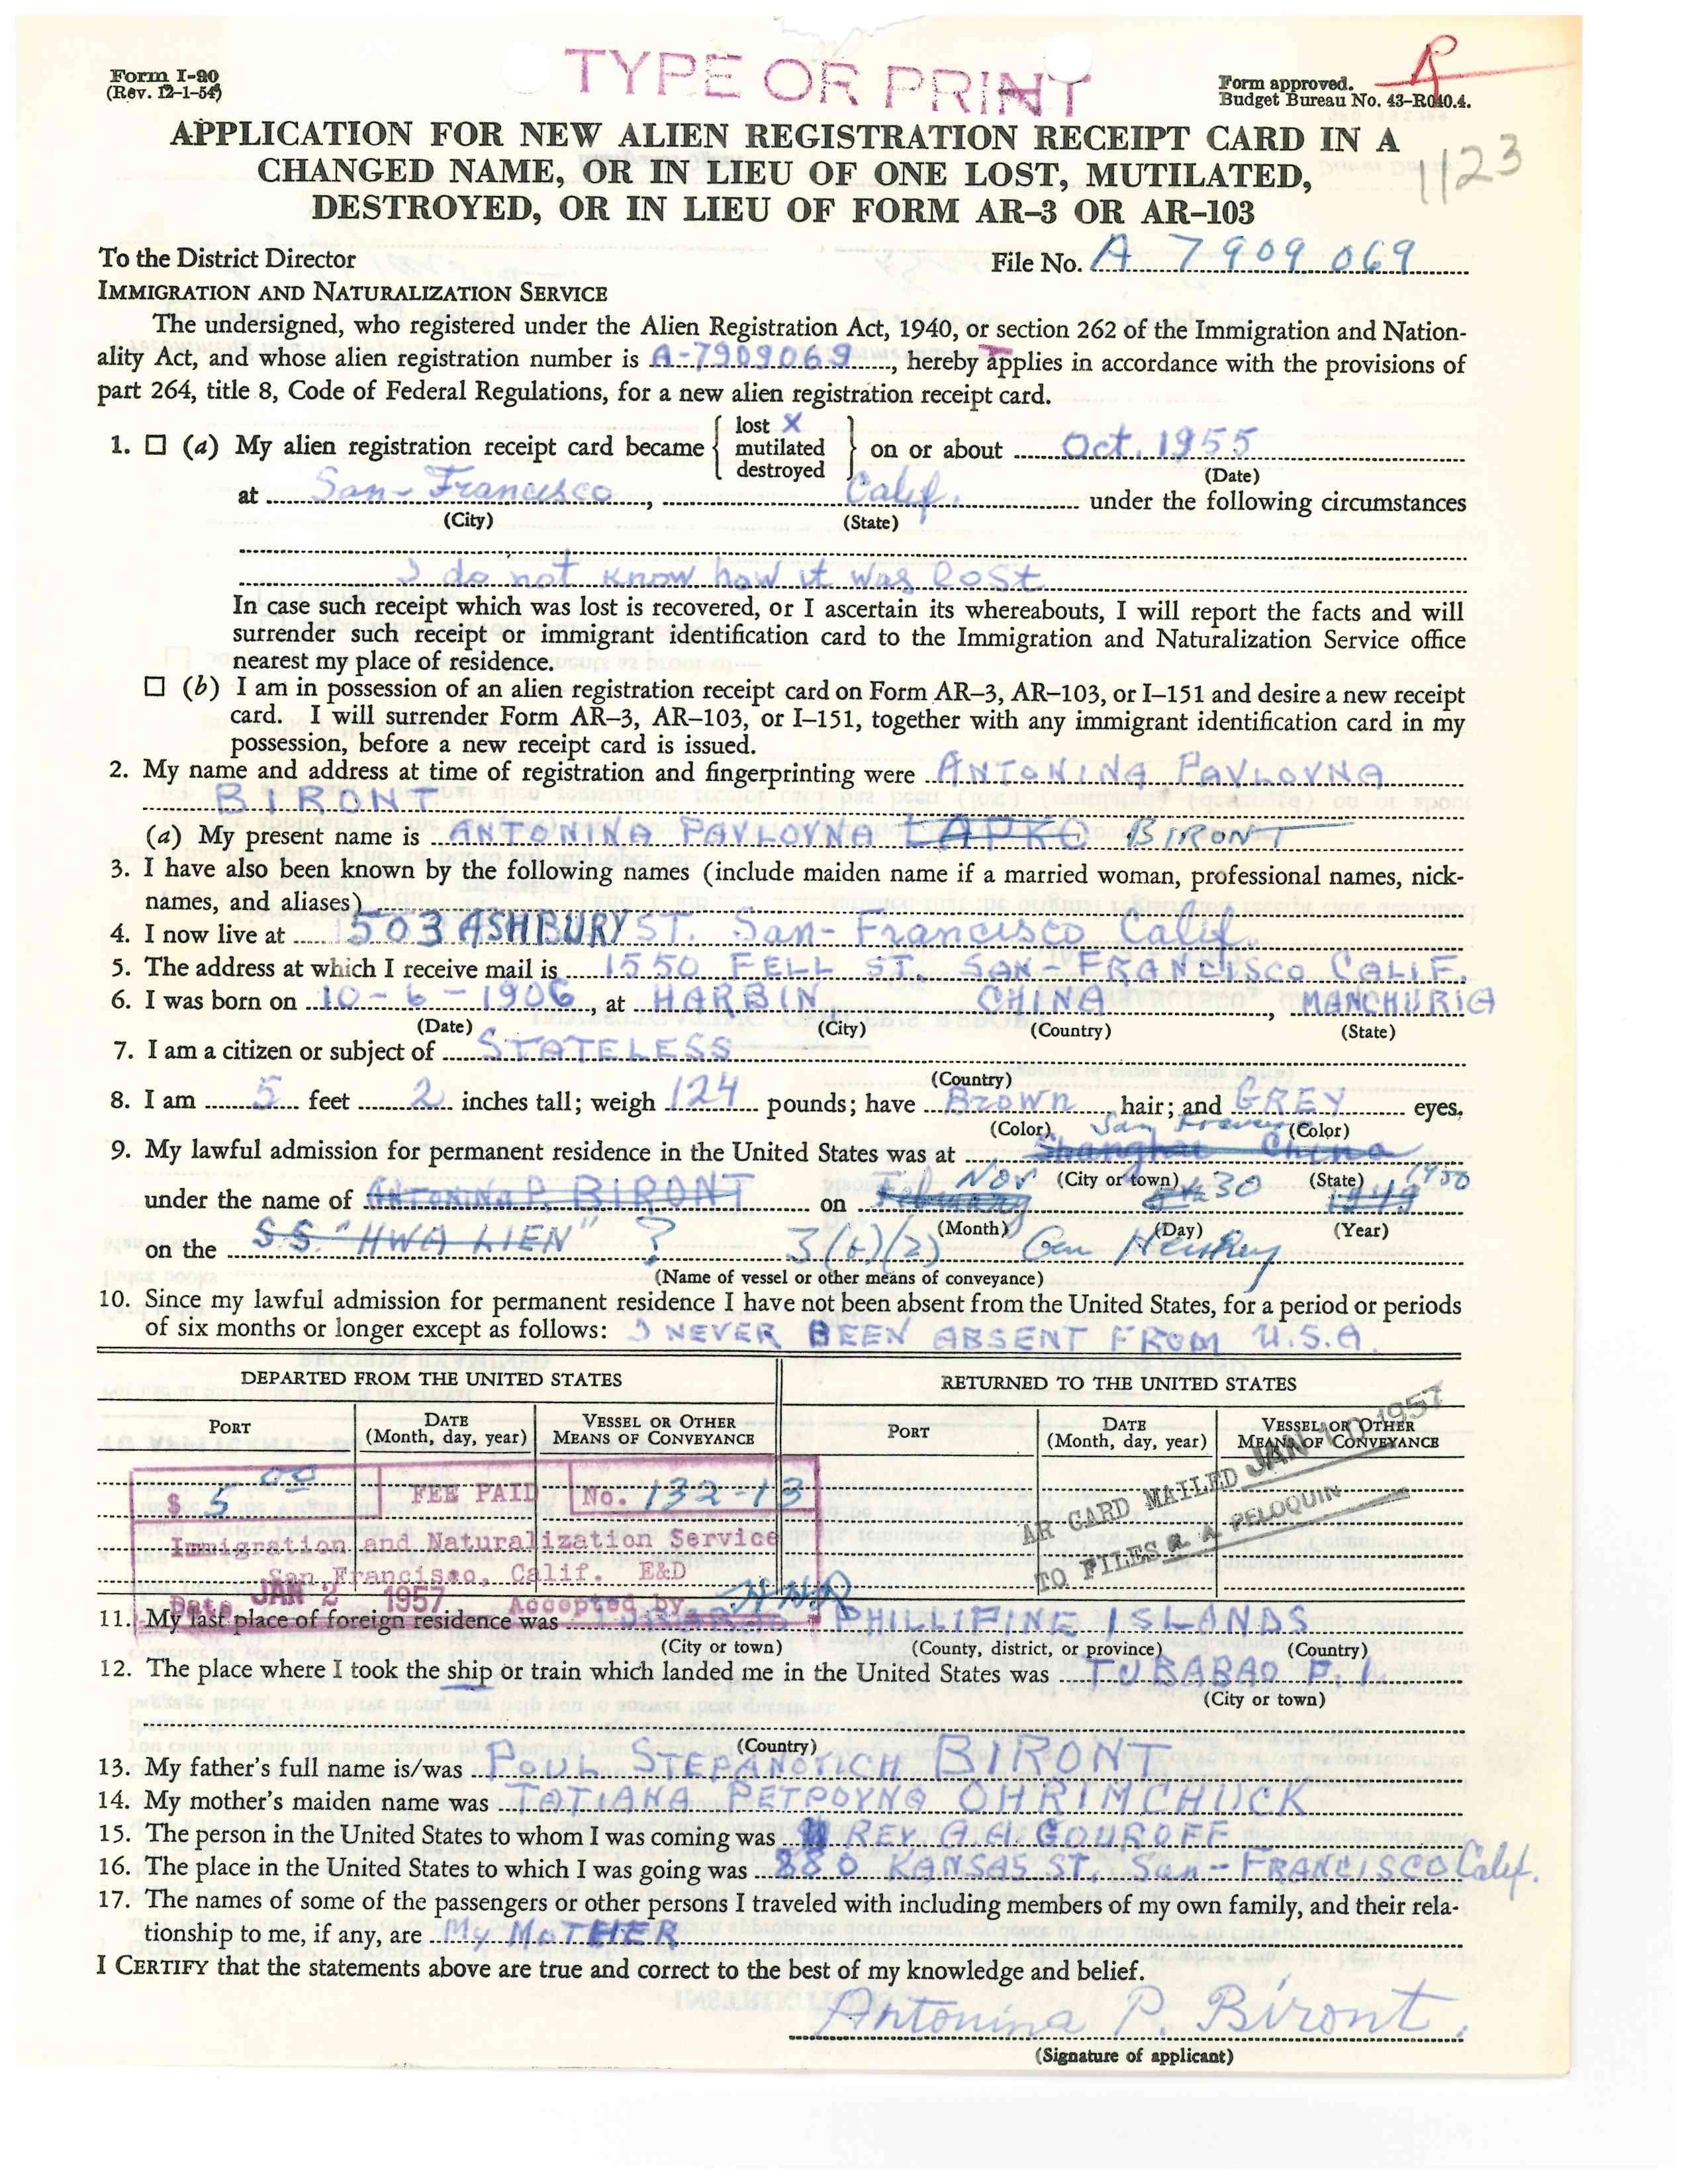 Form I-90
(Rev. 12-1-54)
TYPE OR PRINT
Form approved.
Budget Bureau No. 43-R040.4.
APPLICATION FOR NEW ALIEN REGISTRATION RECEIPT CARD IN A
CHANGED NAME, OR IN LIEU OF ONE LOST, MUTILATED,
DESTROYED, OR IN LIEU OF FORM AR-3 OR AR-103
1123
To the District Director
File No. A 7909 069
IMMIGRATION AND NATURALIZATION SERVICE
The undersigned, who registered under the Alien Registration Act, 1940, or section 262 of the Immigration and Nation-
ality Act, and whose alien registration number is A-7909069, hereby applies in accordance with the provisions of
part 264, title 8, Code of Federal Regulations, for a new alien registration receipt card.
1. ☐ (a) My alien registration receipt card became { lost X mutilated destroyed } on or about Oct. 1955
(Date)
at San-Francisco, Calif. under the following circumstances
(City) (State)
I do not know how it was lost
In case such receipt which was lost is recovered, or I ascertain its whereabouts, I will report the facts and will
surrender such receipt or immigrant identification card to the Immigration and Naturalization Service office
nearest my place of residence.
☐ (b) I am in possession of an alien registration receipt card on Form AR-3, AR-103, or I-151 and desire a new receipt
card. I will surrender Form AR-3, AR-103, or I-151, together with any immigrant identification card in my
possession, before a new receipt card is issued.
2. My name and address at time of registration and fingerprinting were ANTONINA PAVLOVNA
BIRONT
(a) My present name is ANTONINA PAVLOVNA LAPKO BIRONT
3. I have also been known by the following names (include maiden name if a married woman, professional names, nick-
names, and aliases)
4. I now live at 503 ASHBURY ST. San-Francisco Calif.
5. The address at which I receive mail is 1550 FELL ST. SAN-FRANCISCO CALIF.
6. I was born on 10-6-1906, at HARBIN CHINA, MANCHURIA
(Date) (City) (Country) (State)
7. I am a citizen or subject of STATELESS
(Country)
8. I am 5 feet 2 inches tall; weigh 124 pounds; have Brown hair; and GREY eyes.
(Color) San Francisco (Color)
9. My lawful admission for permanent residence in the United States was at Shanghai China
(City or town) (State)
under the name of Antonina P. BIRONT on Nov 30 1950 1949
(Month) (Day) (Year)
on the S.S. "HWA LIEN" ? 3(6)(2) Gen Hershey
(Name of vessel or other means of conveyance)
10. Since my lawful admission for permanent residence I have not been absent from the United States, for a period or periods
of six months or longer except as follows: I NEVER BEEN ABSENT FROM U.S.A.
DEPARTED FROM THE UNITED STATES
RETURNED TO THE UNITED STATES
PORT
DATE (Month, day, year)
VESSEL OR OTHER MEANS OF CONVEYANCE
PORT
DATE (Month, day, year)
VESSEL OR OTHER MEANS OF CONVEYANCE
$ 5 00 FEE PAID No. 132-13
Immigration and Naturalization Service
San Francisco, Calif. E&D
Date JAN 2 1957 Accepted by
AR CARD MAILED JAN 10 1957
TO FILES R. A. PELOQUIN
11. My last place of foreign residence was PHILLIPINE ISLANDS
(City or town) (County, district, or province) (Country)
12. The place where I took the ship or train which landed me in the United States was TUBABAO P. I.
(City or town)
(Country)
13. My father's full name is/was POUL STEPANOVICH BIRONT
14. My mother's maiden name was TATIANA PETROVNA OHRIMCHUCK
15. The person in the United States to whom I was coming was REV. A. A. GOUROFF
16. The place in the United States to which I was going was 880 KANSAS ST. San-FRANCISCO Calif.
17. The names of some of the passengers or other persons I traveled with including members of my own family, and their rela-
tionship to me, if any, are My MOTHER
I CERTIFY that the statements above are true and correct to the best of my knowledge and belief.
Antonina P. Biront.
(Signature of applicant)